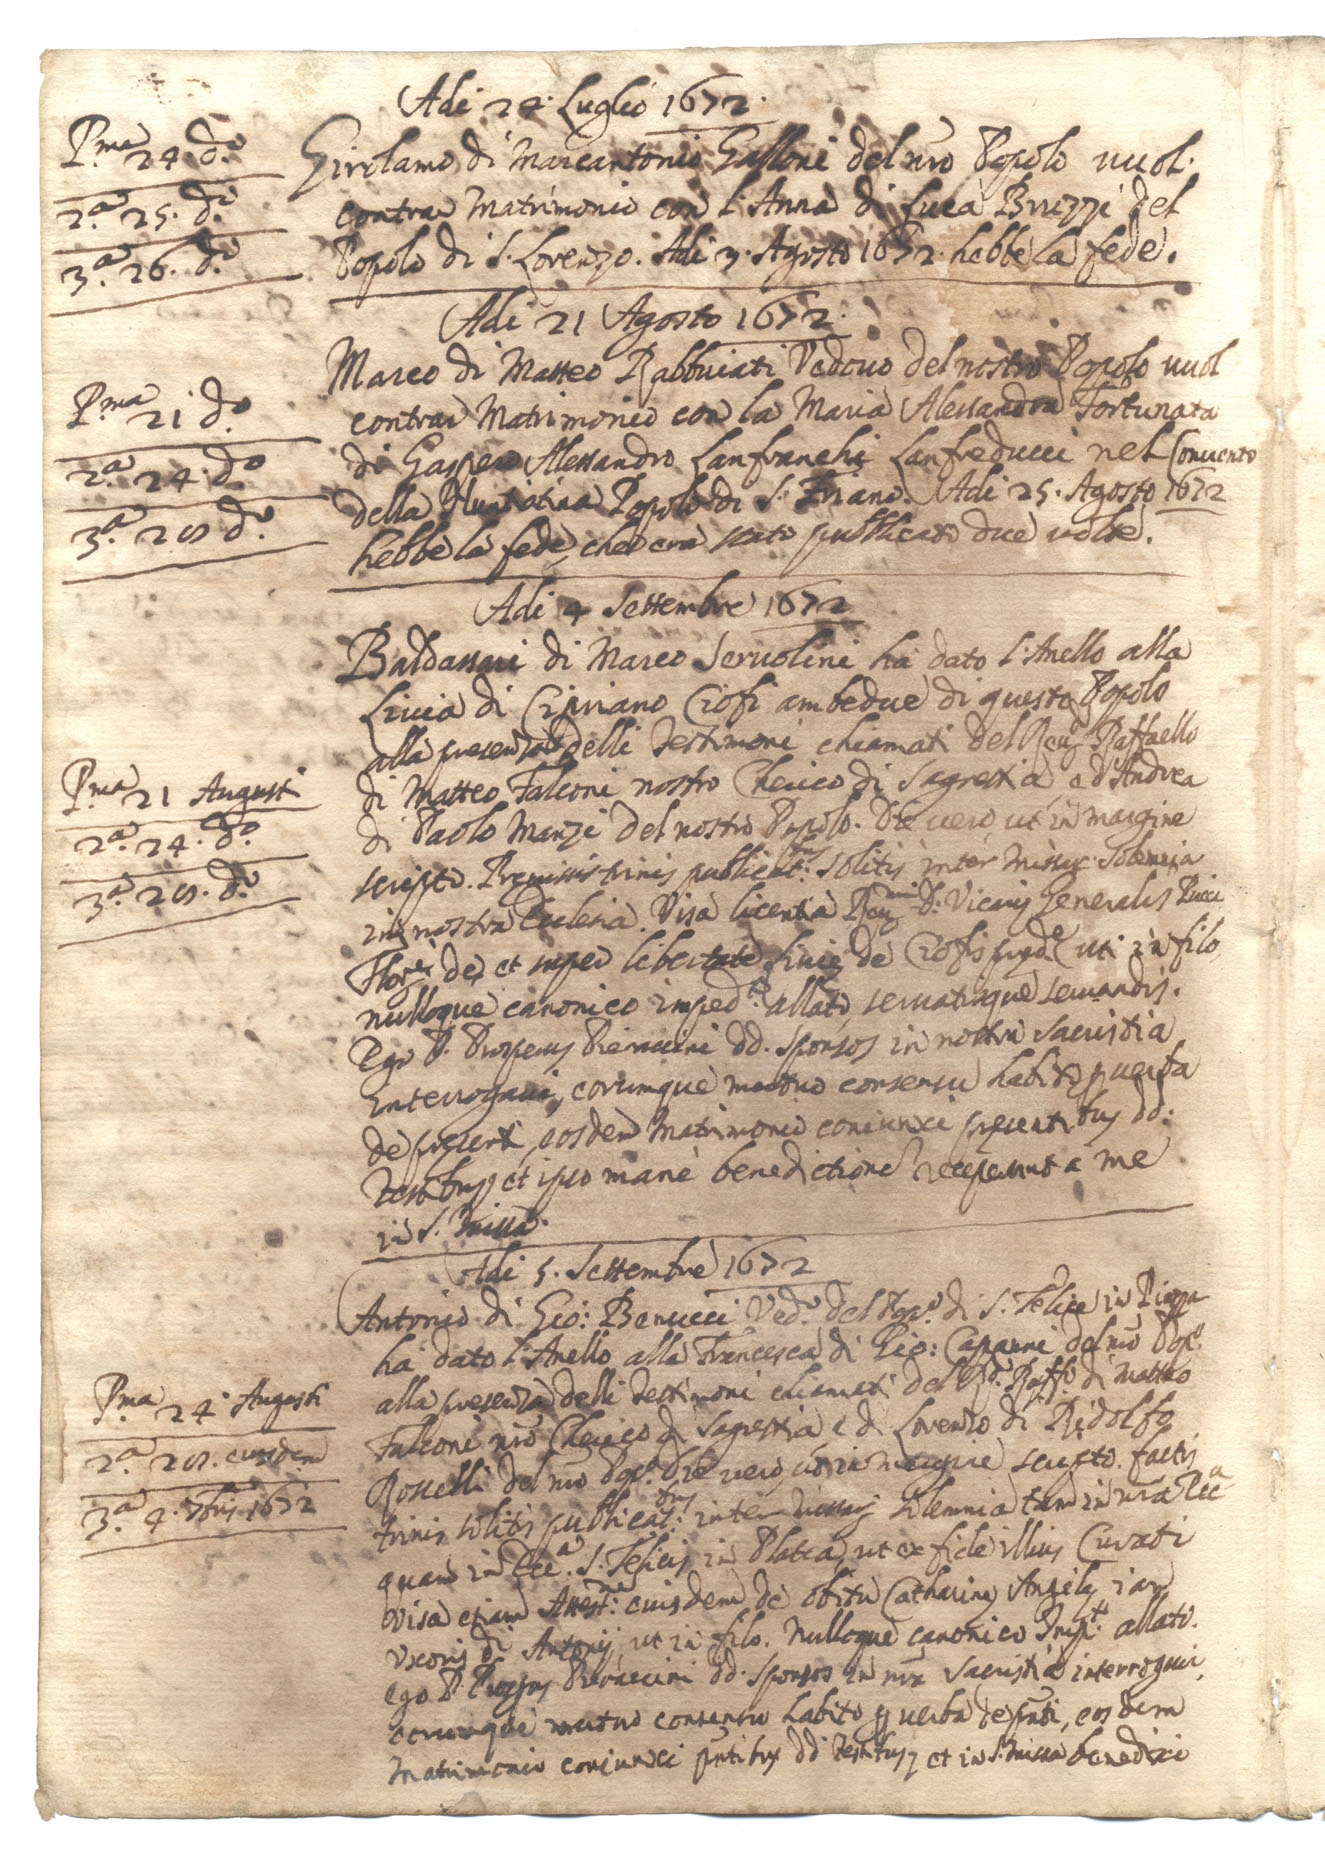 Adi 24. Luglio 1672.
P.ma 24 d.o
2.a 25. d.o
3.a 26. d.o
Girolamo di Marcantonio Galloni del nrõ Popolo vuol
contrar Matrimonio con l'Anna di Luca Bruzzi del
Popolo di S. Lorenzo. Adi 3. Agosto 1672. hebbe la fede.
Adi 21 Agosto 1672.
P.ma 21 d.o
2.a 24. d.o
3.a 28 d.o
Marco di Matteo Rabbuiati Vedouo del nostro Popolo uuol
contrar Matrimonio con la Maria Alessandra Fortunata
di Gaspero Alessandro Lanfranchi Lanfreducci nel Conuento
della Nuntiatina Popolo di S. Friano. Adi 25. Agosto 1672
hebbe la fede, che era stato pubblicato due uolte.
Adi 4 Settembre 1672
P.ma 21 Augusti
2.a 24. d.o
3.a 28. d.o
Baldassari di Marco Seruolini ha dato l'Anello alla
Liuia di Cipriano Ciofi ambedue di questo Popolo
alla presenza delli testimoni chiamati del Reu.do Raffaello
di Matteo Falconi nostro Cherico di Sagrestia, e d'Andrea
di Paolo Manzi del nostro Popolo. Die uero, ut in margine
scripto. Premissis trinis publicat:bus solitis inter Missar. Solemnia
in nostra Ecclesia. Visa licentia Reu.mi D. Vicarij Generalis
de, et super libertate Liuie de Ciofis pred.e uti in filo,
nulloque canonico imped.to allato, seruatisque seruandis.
Ego P. Prosperus Pieraccini dd. sponsos in nostra sacristia
interrogaui, eorumque mutuo consensu habito p uerba
de presenti, eosdem Matrimonio coniunxi presentibus dd:
testibus, et ipso mane benedictione receperunt a me
in S. Missa.
Adi 5. Settembre 1672
P.ma 24 Augusti
2.a 28. eiusdem
3.a 4. 7bris 1672
Antonio di Gio: Benucci Ved.o del Pop.o di S. Felice in Piazza
ha dato l'Anello alla Francesca di Gio: Capanni del nrõ Pop.o
alla presenza delli testimoni chiamati del R.d Raff.o di Matteo
Falconi nrõ Cherico di Sagrestia e di Lorenzo di Ridolfo
Rosselli del nrõ Pop.o Die uero, ut in margine scripto. factis
trinis solitis publicat:bus inter Missar. solemnia tam in nra Ecc.a
quam in Ecc.a S. Felicis in Platea, ut ex fide illius Curati
Visa etiam Attest.ne eiusdem de obitu Catharine Angiele iam
uxoris d.i Antonij, ut in filo. Nulloque canonico Imp.to allato.
Ego P. Prosperus Pieraccini dd. sponsos in nra sacristia interrogaui,
eorumque mutuo consensu habito p uerba de pñti, eosdem
Matrimonio coniunxi pñtibus dd. testibus, et in S. Missa benedixi